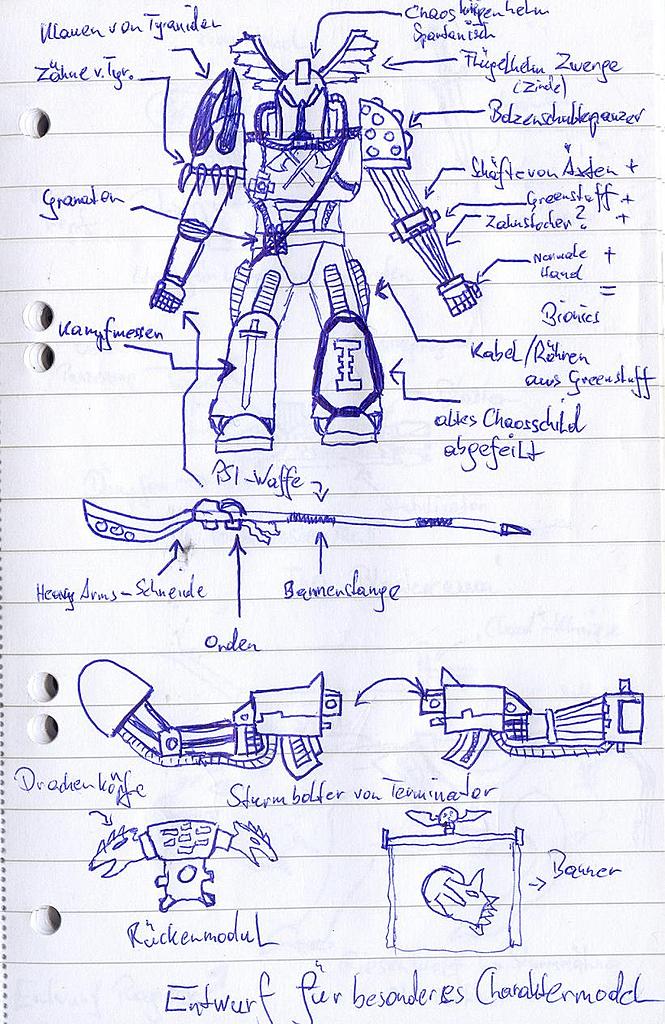 Klauen von Tyraniden
Chaoskriegerhelm
Spartanisch
Zähne v. Tyr.
Flügelhelm Zwerge
(Zinde)
Bolzenschulterpanzer
Schäfte von Äxten +
Granaten
Greenstuff +
Zahnstocher? +
Normale +
Hand
=
Bionics
Kampfmesser
Kabel/Röhren
aus Greenstuff
altes Chaosschild
abgefeilt
PSI-Waffe
Heavy Arms-Schneide
Bannerstange
Orden
Drachenköpfe
Sturmbolter von Terminator
Banner
Rückenmodul
Entwurf für besonderes Charaktermodel